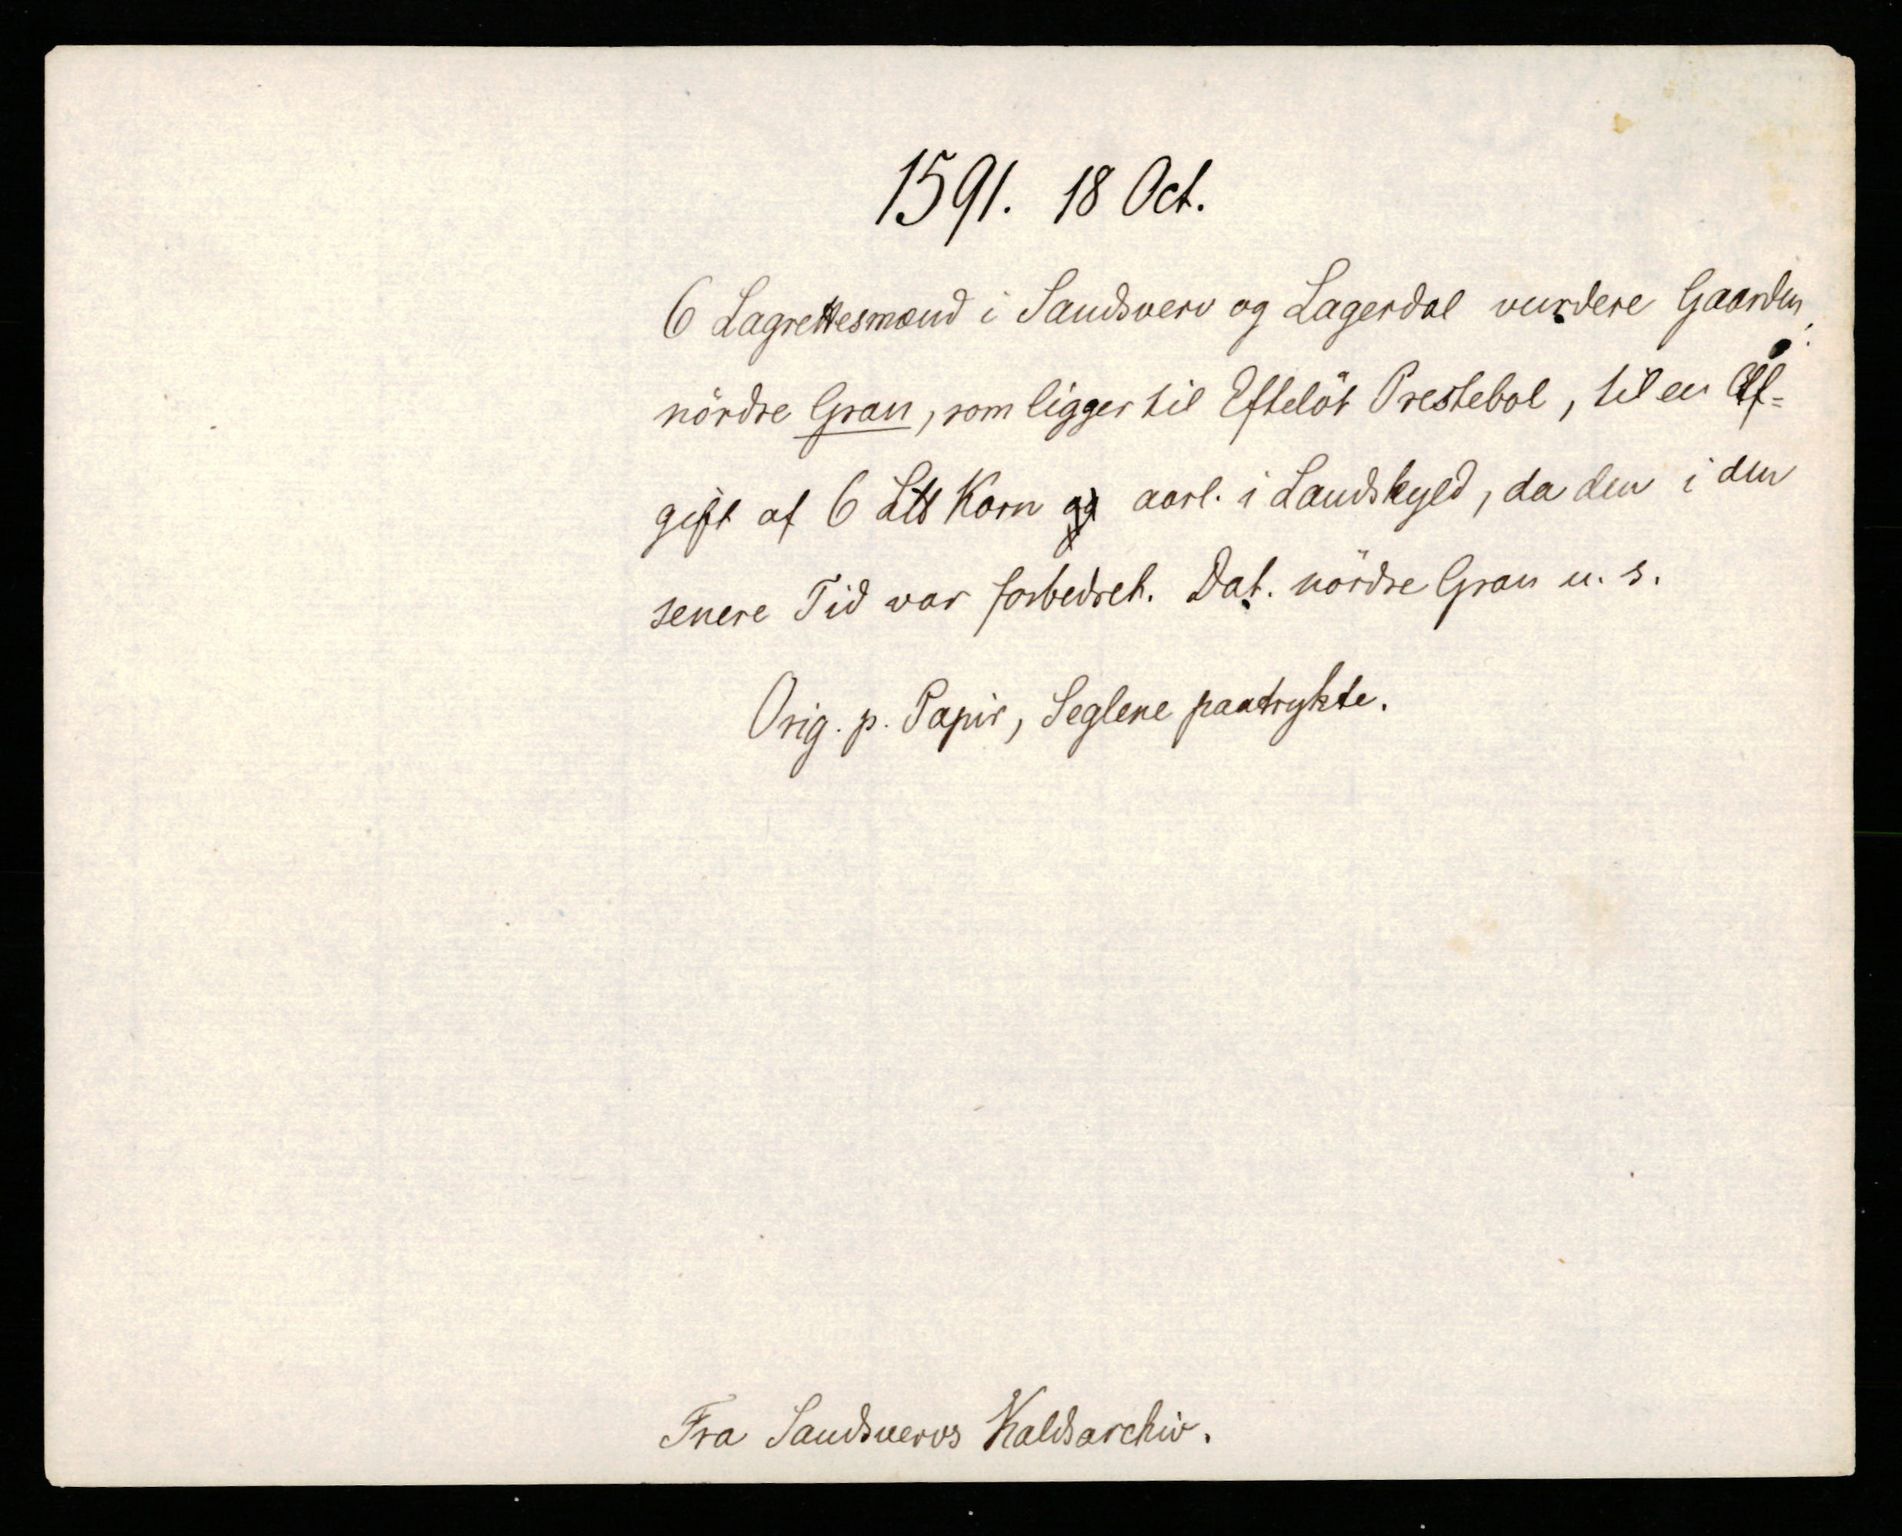 1591. 18 Oct.
6 Lagrettesmænd i Sandsverv og Lagerdal vurdere Gaarden
nördre Gran, som ligger til Eftelöt Prestebol, til en Af-
gift af 6 Ltt Korn og aarl. i Landskyld, da den i den
senere Tid var forbedret. Dat. nördre Gran u. s.
Orig. p. Papir, Seglene paatrykte.
Fra Sandsvervs Kaldsarchiv.